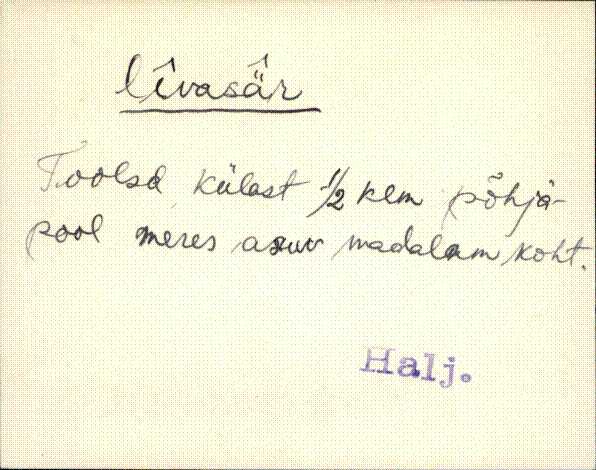 lîvasä̂r
Toolsa külast 1/2 klm põhja-
pool meres asuv madalam koht.
Halj.